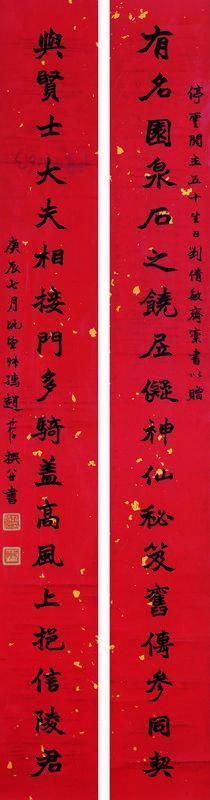 停雲閣主五十生日劉倩敏齋索書以贈
有名園泉石之饒居儗神仙秘笈舊傳參同契
與賢士大夫相接門多騎蓋高風上挹信陵君
庚辰七月趙撰并書